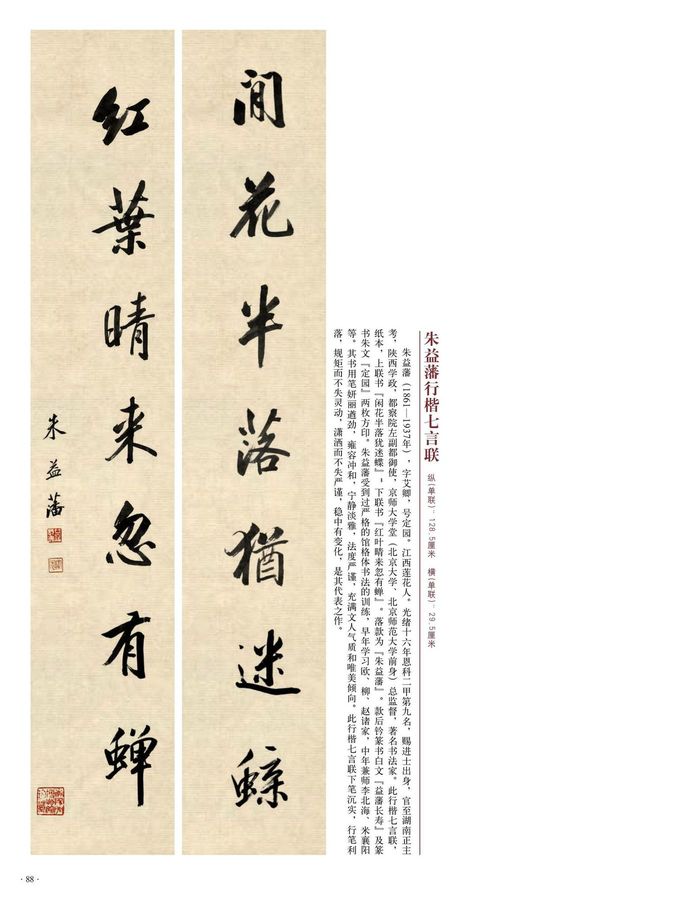 朱益藩行楷七言联 纵(单联):128.5厘米 横(单联):29.5厘米
朱益藩(1861—1937年),字艾卿,号定园。江西莲花人。光绪十六年恩科二甲第九名,赐进士出身,官至湖南正主
考,陕西学政,都察院左副都御使,京师大学堂(北京大学、北京师范大学前身)总监督,著名书法家。此行楷七言联,
纸本,上联书『闲花半落犹迷蝶』,下联书『红叶晴来忽有蝉』。落款为『朱益藩』。款后钤篆书白文『益藩长寿』及篆
书朱文『定园』两枚方印。朱益藩受到过严格的馆格体书法的训练,早年学习欧、柳、赵诸家,中年兼师李北海、米襄阳
等。其书用笔妍丽遒劲,雍容冲和,宁静淡雅,法度严谨,充满文人气质和唯美倾向。此行楷七言联下笔沉实,行笔利
落,规矩而不失灵动,潇洒而不失严谨,稳中有变化,是其代表之作。
閒花半落猶迷蝶
红葉晴来忽有蟬
朱益藩
·88·